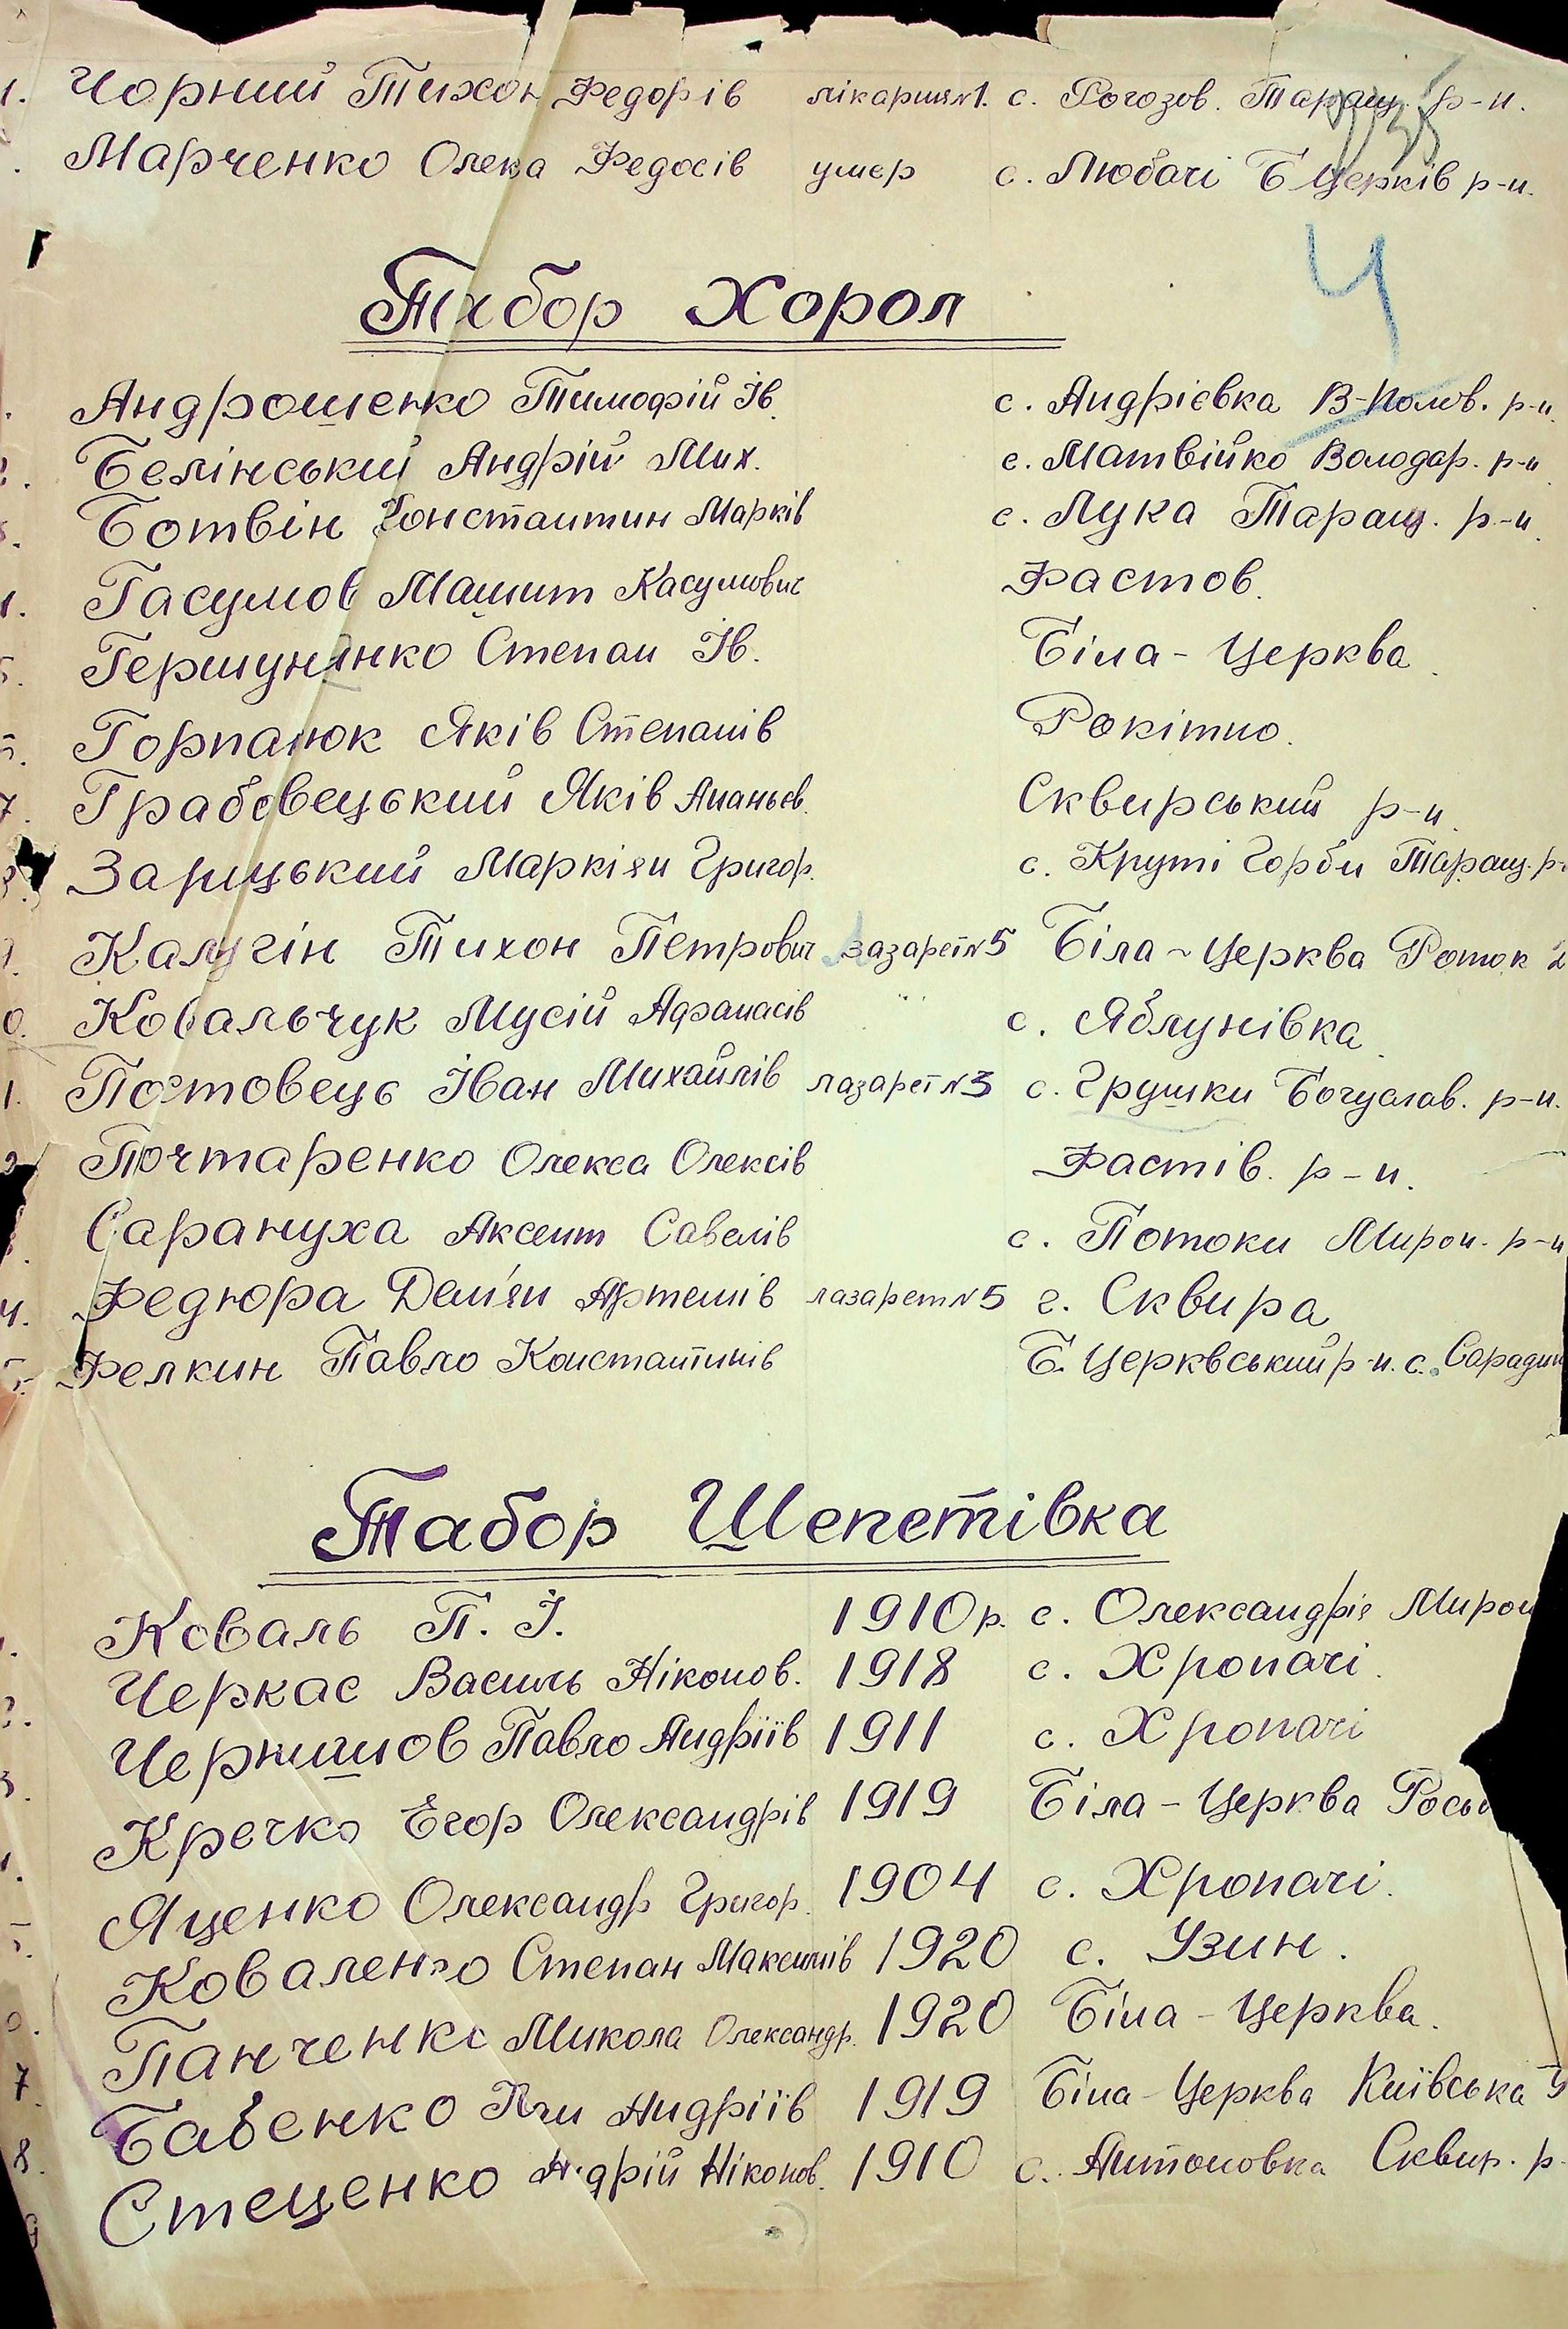 1. Чорний Тихон Федорів лікарня №1. с. Рогозов. Таращ. р-н.
Марченко Олекса Федосів умер с. Любачі Б Церків р-н.
4
Табор Хорол
Андрошенко Тимофій Ів. с. Андрієвка В-Полов. р-н.
Белінський Андрій Мих. с. Матвійко Володар. р-н
Ботвін Константин Марків с. Лука Таращ. р-н.
Гасумов Машит Касумович Фастов.
Гершуненко Степан Ів. Біла-Церква.
Горпанюк Яків Степанів Рокітно.
7. Грабовецький Яків Ананьєв. Сквирський р-н.
Зарицький Маркіян Григор. с. Круті Горби Таращ. р-
Калугін Тихон Петрович лазарет №5 Біла-Церква Роток 2
0. Ковальчук Мусій Афанасів с. Яблунівка.
1. Постовець Іван Михайлів лазарет №3 с. Грушки Богуслав. р-н.
2. Почтаренко Олекса Олексів Фастів. р-н.
Сарануха Аксент Савелів с. Потоки Мирон. р-н
4. Федюра Дем'ян Артемів лазарет №5 г. Сквира
5. Фелкин Павло Константинів Б. Церквський р-н. с.
Табор Шепетівка
Коваль П. І. 1910 р. с. Олександрія Мирон
Черкас Василь Ніконов. 1918 с. Хропачі.
Чернишов Павло Андріїв 1911 с. Хропачі
Кречко Егор Олександрів 1919 Біла-Церква
Яценко Олександр Григор. 1904 с. Хропачі.
Коваленко Степан Максимів 1920 с. Узин.
Панченко Микола Олександр. 1920 Біла-Церква.
7. Бабенко Андріїв 1919 Біла-Церква Київська
8. Стеценко Андрій Ніконов. 1910 с. Антоновка Сквир. р-